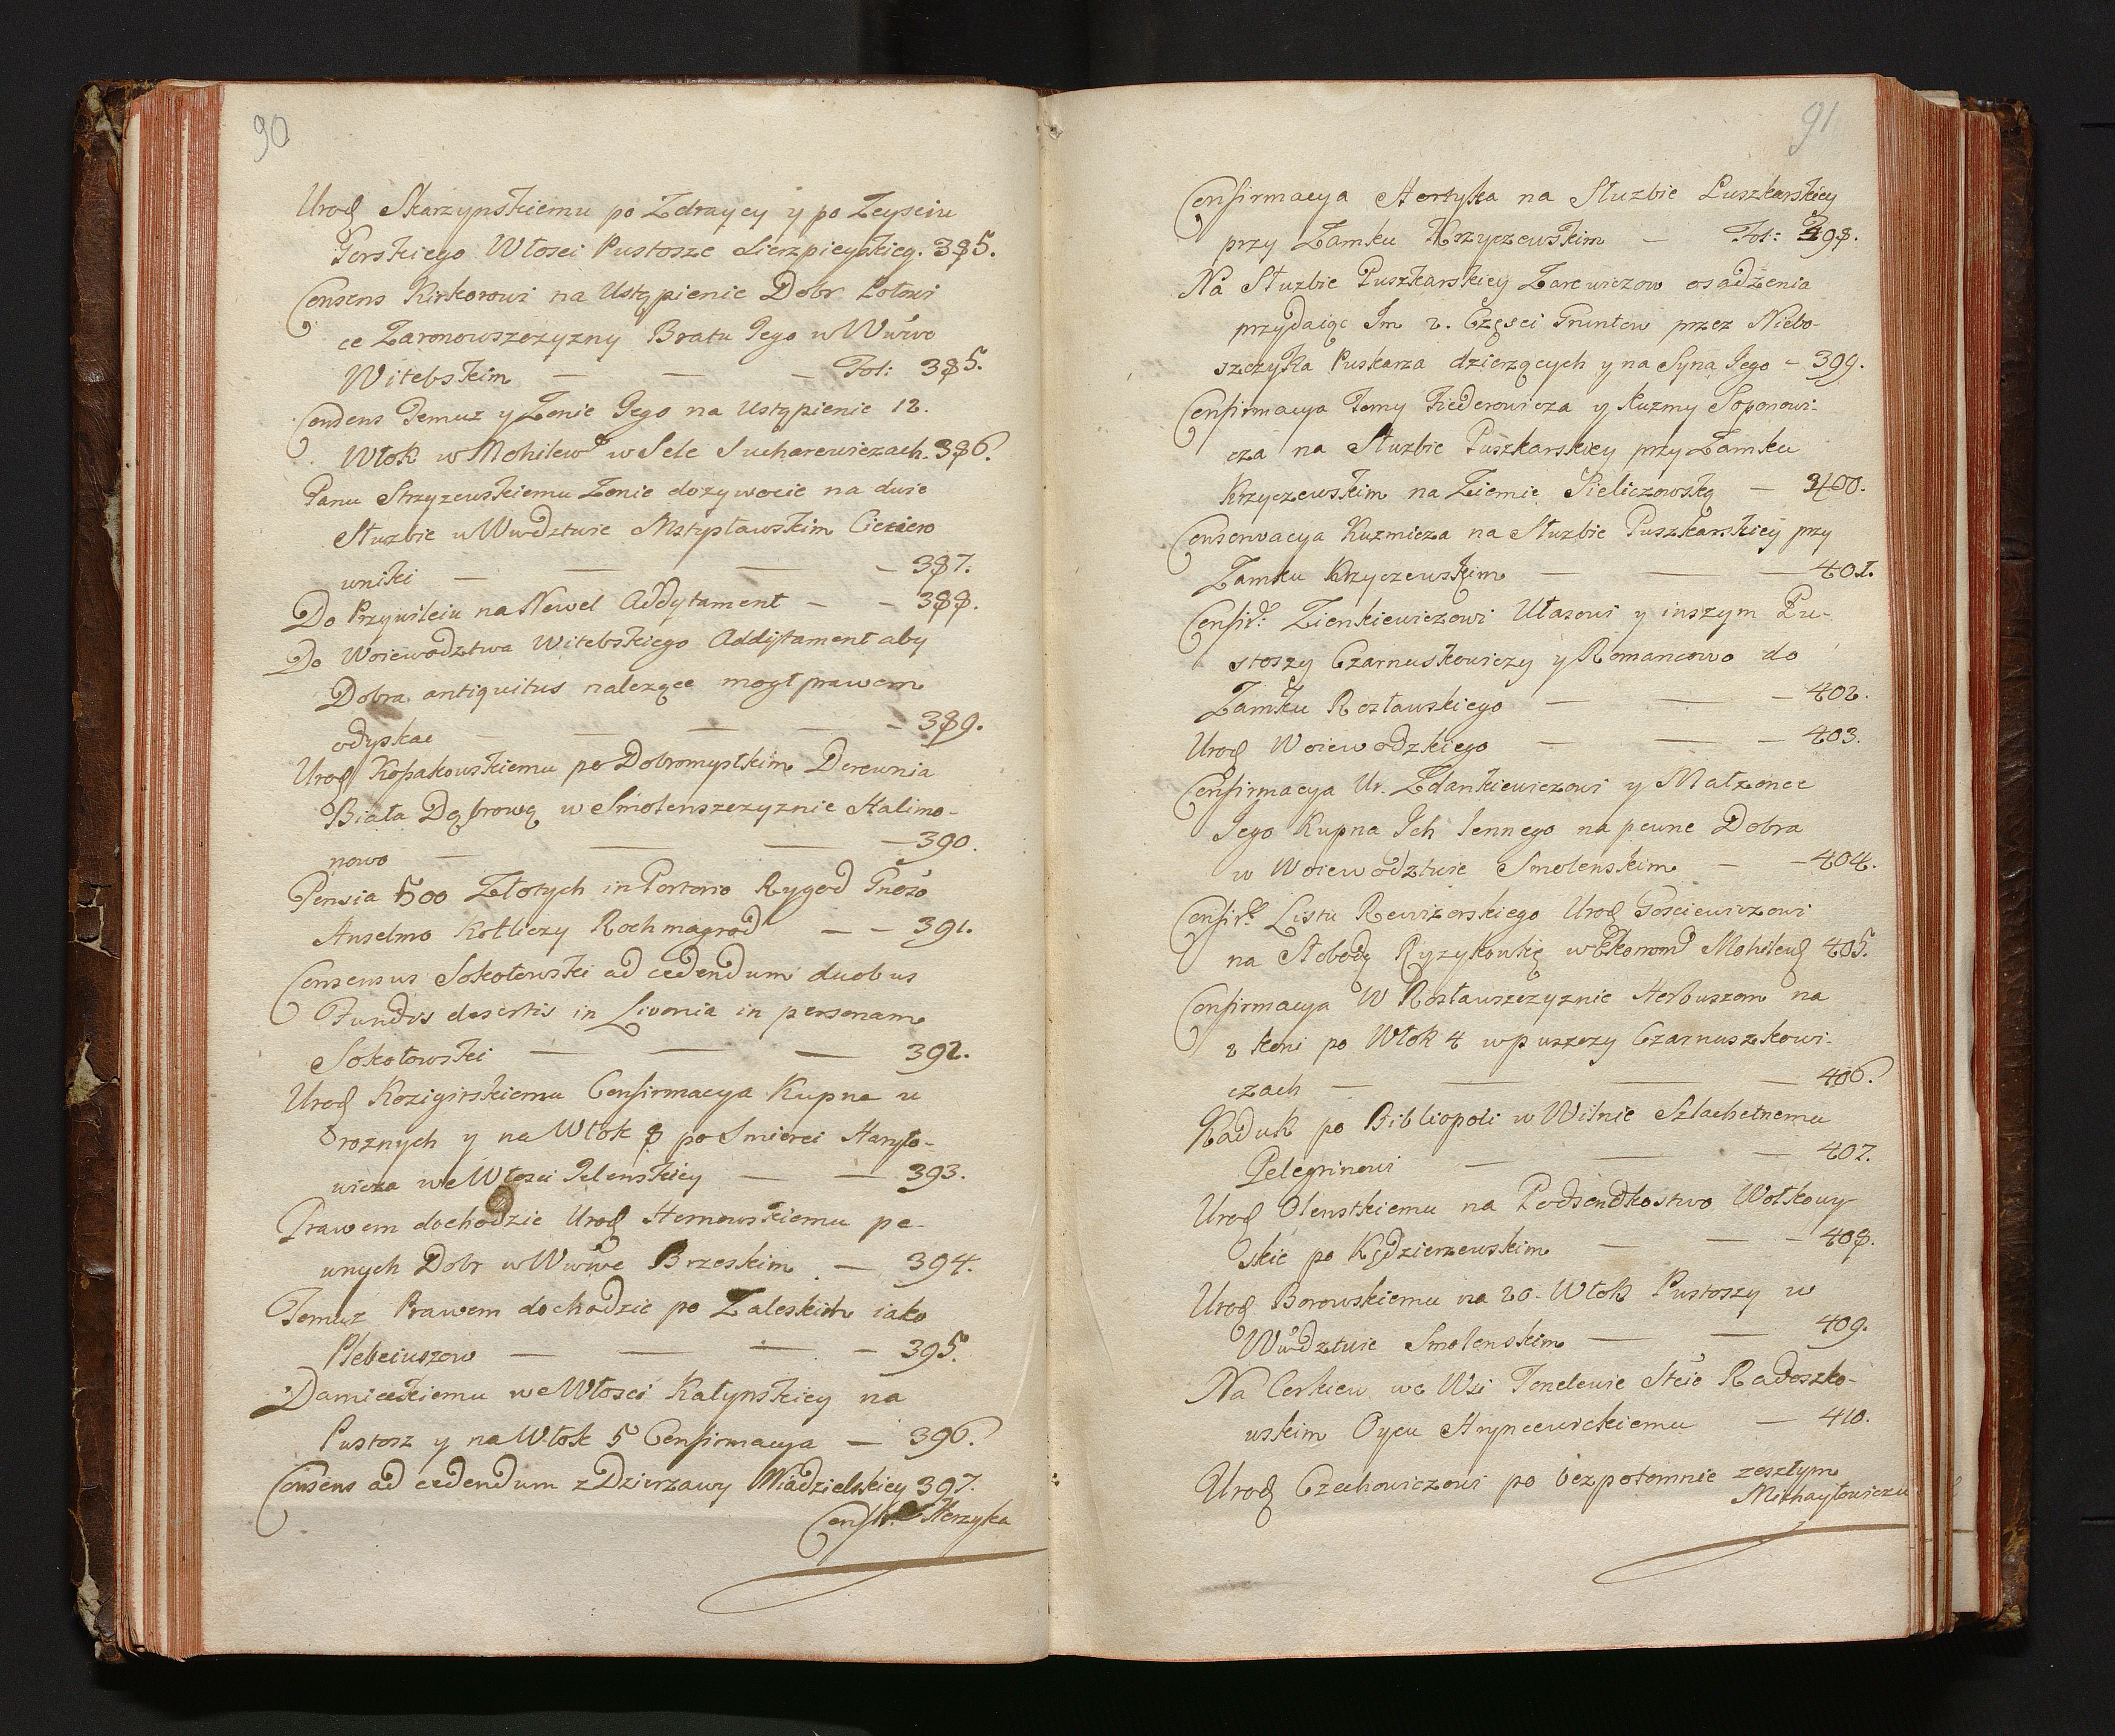 90
Urod Skarzynskiemu po Zdraycy y po Zeysciu
Gorskiego Włosci Pustosze Sierzpieyskieg. 385.
Consens Kirkorowi na Ustąpienie Dobr Połowi
ce Zaronowszczyzny Bratu Jego w Wwwo
Witebskim — — — Fol: 385.
Consens Temuz y Zonie Jego na Ustąpienie 12.
Włok w Mohilew w Sele Sucharewiczach. 386.
Panu Strzyzewskiemu Zonie dozywocie na dwie
Słuzbie w Wwdztwie Mstysławskim Ciezien
uniki — — — — 387.
Do Przywileiu na Newel Addytament — — 388.
Do Woiewodztwa Witebskiego Addytament aby
Dobra antiquitus nalezące mogł prawem
odyskac — — — — 389.
Urod Kopakowskiemu po Dobromysłkim Derewnia
Biała Dąbrowę w Smolenszczyznie Halimo-
nowo — — — — 390.
Pensia 500 Złotych in Portorio Rygod Gnoso
Anselmo Kołliczy Rochmagrod — — 391.
Consensus Sokołowski ad cedendum duobus
Fundis desertis in Livonia in personam
Sokołowski — — — 392.
Urod Kozigirskiemu Confirmacya Kupna u
roznych y na Włok 8 po Smierci Haryło-
wicza we Włosci Jelenskiey — — 393.
Prawem dochodzic Urod Hernowskiemu pe-
wnych Dobr w Wwwe Brzeskim — 394.
Temuz Prawem dochodzic po Zaleskich iako
Plebeiuszow — — — — 395.
Damieckiemu we Włosci Katynskiey na
Pustosz y na Włok 5 Confirmacya — 396.
Consens ad cedendum z Dzierzawy Miadzielskiey 397.
Confir. Herzyka
91
Confirmacya Hertyka na Słuzbie Puszkarskiey
przy Zamku Krzyczewskim — Fol: 398.
Na Słuzbie Puszkarskiey Zarewiczow osadzenia
przydaiąc Im 2. Częsci Gruntow przez Niebo-
szczyka Puskarza dzierzących y na Syna Jego — 399.
Confirmacya Jemy Fiederowicza y Kuzmy Soponowi-
cza na Słuzbie Puszkarskiey przy Zamku
Krzyczewskim na Ziemie Sieliczowską — 400.
Conservacya Kuzmicza na Słuzbie Puszkarskiey przy
Zamku Krzyczewskim — — — 401.
Confir. Zienkiewiczowi Ułasowi y inszym Pu-
stoszy Czarnuskowiczy y Romancowo do
Zamku Rosławskiego — — — 402.
Urod Woiewodzkiego — — — 403.
Confirmacya Ur. Zdankiewiczowi y Małzonce
Jego Kupna Ich lennego na pewne Dobra
w Woiewodztwie Smolenskim — — 404.
Confir. Listu Rewizorskiego Urod Gosciewiczowi
na Słobodę Ryzykowkę w Ekonom Mohilew 405.
Confirmacya W Rosławszczyznie Herbuszom na
2 koni po Włok 4 w puszczy Czarnuszkowi-
czach — — — — 406.
Kaduk po Bibliopoli w Wilnie Szlachetnemu
Pelegrinowi — — — 407.
Urod Olenskiemu na Podsendkostwo Wołkowy
skie po Kędzierzewskim — — — 408.
Urod Borowskiemu na 20. Włok Pustoszy w
Wwdztwie Smolenskim — — 409.
Na Cerkiew we Wsi Tonelewie Stcie Radoszko-
wskim Oycu Hryncewickiemu — 410.
Urod Czechowiczowi po bezpotomnie zeszłym
Michayłowiczu